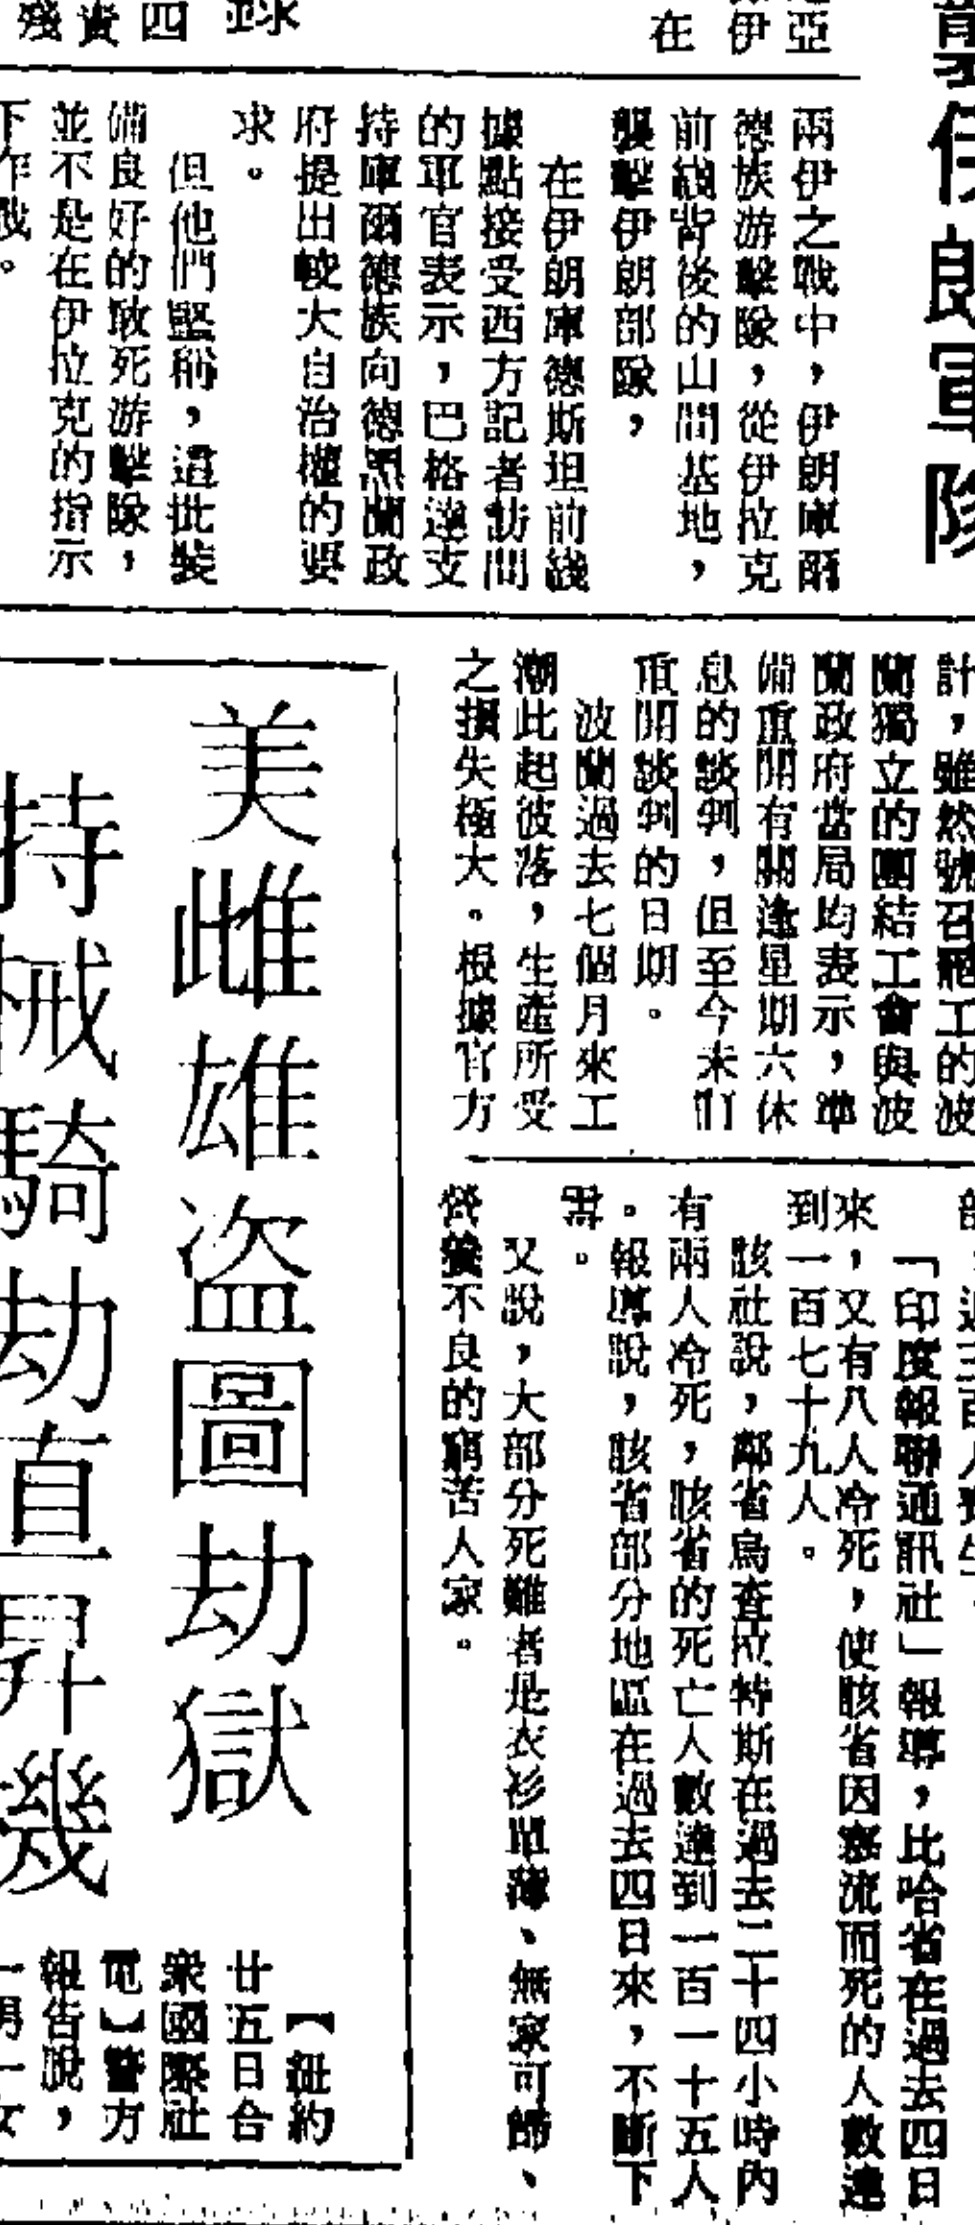 亞
伊
在
錄
四
責
殘
伊朗軍隊
兩伊之戰中，伊朗庫爾
德族游擊隊，從伊拉克
前綫背後的山間基地，
襲擊伊朗部隊，
在伊朗庫德斯坦前綫
據點接受西方記者訪問
的軍官表示，巴格達支
持庫爾德族向德黑蘭政
府提出較大自治權的要
求。
但他們堅稱，這批裝
備良好的敢死游擊隊，
並不是在伊拉克的指示
下作戰。
計，雖然號召罷工的波
蘭獨立的團結工會與波
蘭政府當局均表示，準
備重開有關逢星期六休
息的談判，但至今未們
重開談判的日期。
波蘭過去七個月來工
潮此起彼落，生產所受
之損失極大。根據官方
「印度報聯通訊社」報導，比哈省在過去四日
來，又有八人冷死，使該省因寒流而死的人數達
到一百七十九人。
該社說，鄰省烏查拉特斯在過去二十四小時內
有兩人冷死，該省的死亡人數達到一百一十五人
。報導說，該省部分地區在過去四日來，不斷下
雪。
又說，大部分死難者是衣衫單薄、無家可歸、
營養不良的窮苦人家。
美雌雄盗圖劫獄
持械騎劫直昇機
【紐約
廿五日合
衆國際社
電】警方
報告說，
一男一女